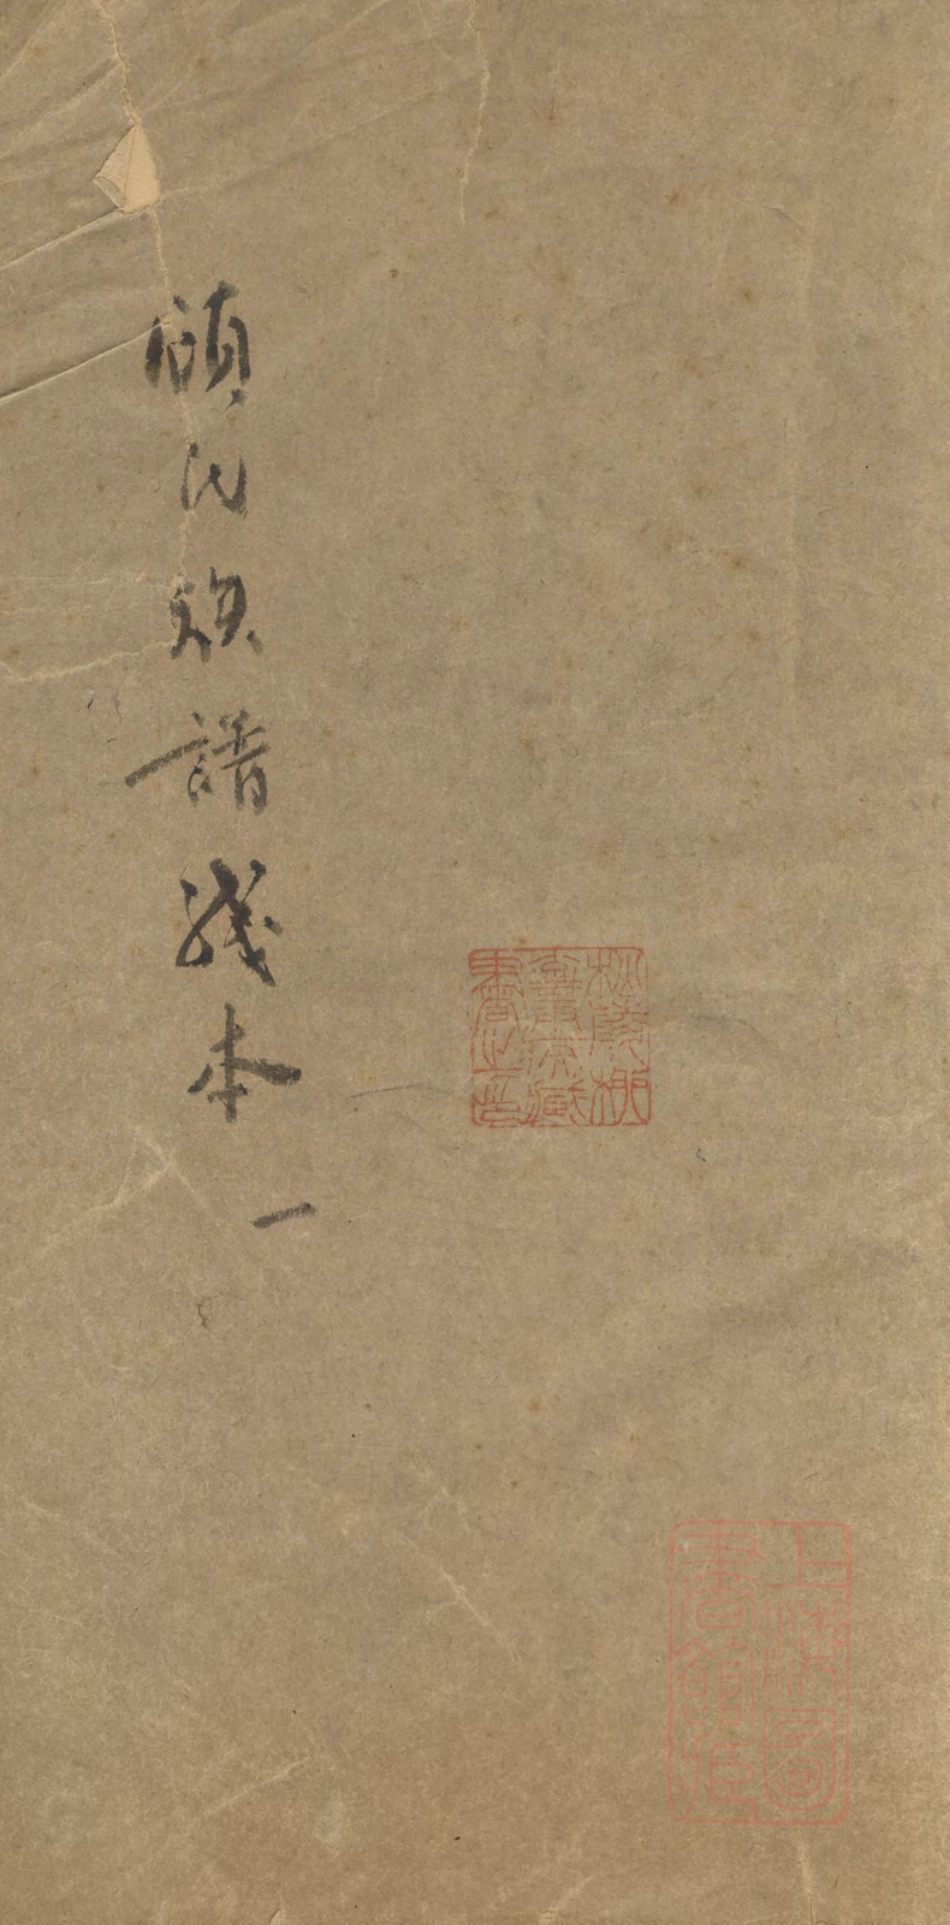 顧氏族譜殘本 一
上海圖
書館藏